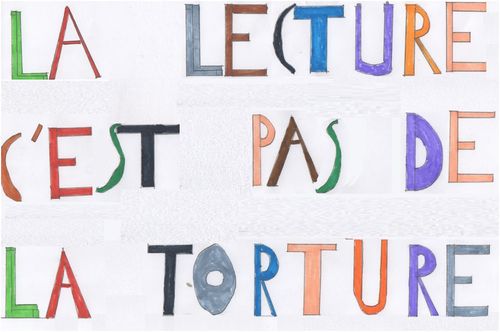 LA LECTURE
C'EST PAS DE
LA TORTURE